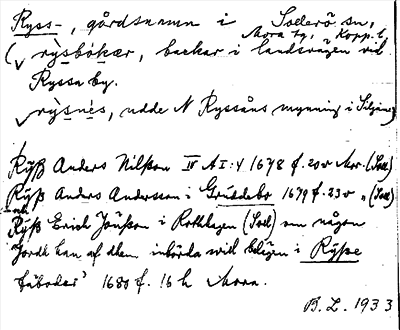 Ryss-, gårdsnamn i Sollerö sn,
Mora tg, Kopp. l.
(√ rysbåkær, backar i landsvägen vid
Ryssa by.
√ rysnes, udde N Ryssåns mynning i Siljan)
Rÿß Anders Nilßon IV A I:4 1678 f. 20v Mor. (Soll)
Rÿß Anders Andersson i Gruddebo 1679 f. 23v " (Soll)
Rÿß Erich Jönßon i Rothlagen (Soll) om någon
Jordh han af dhem inbörda widh belägen i Rÿßze
fäboder 1680 f. 16 h Mora.
B. L. 1933